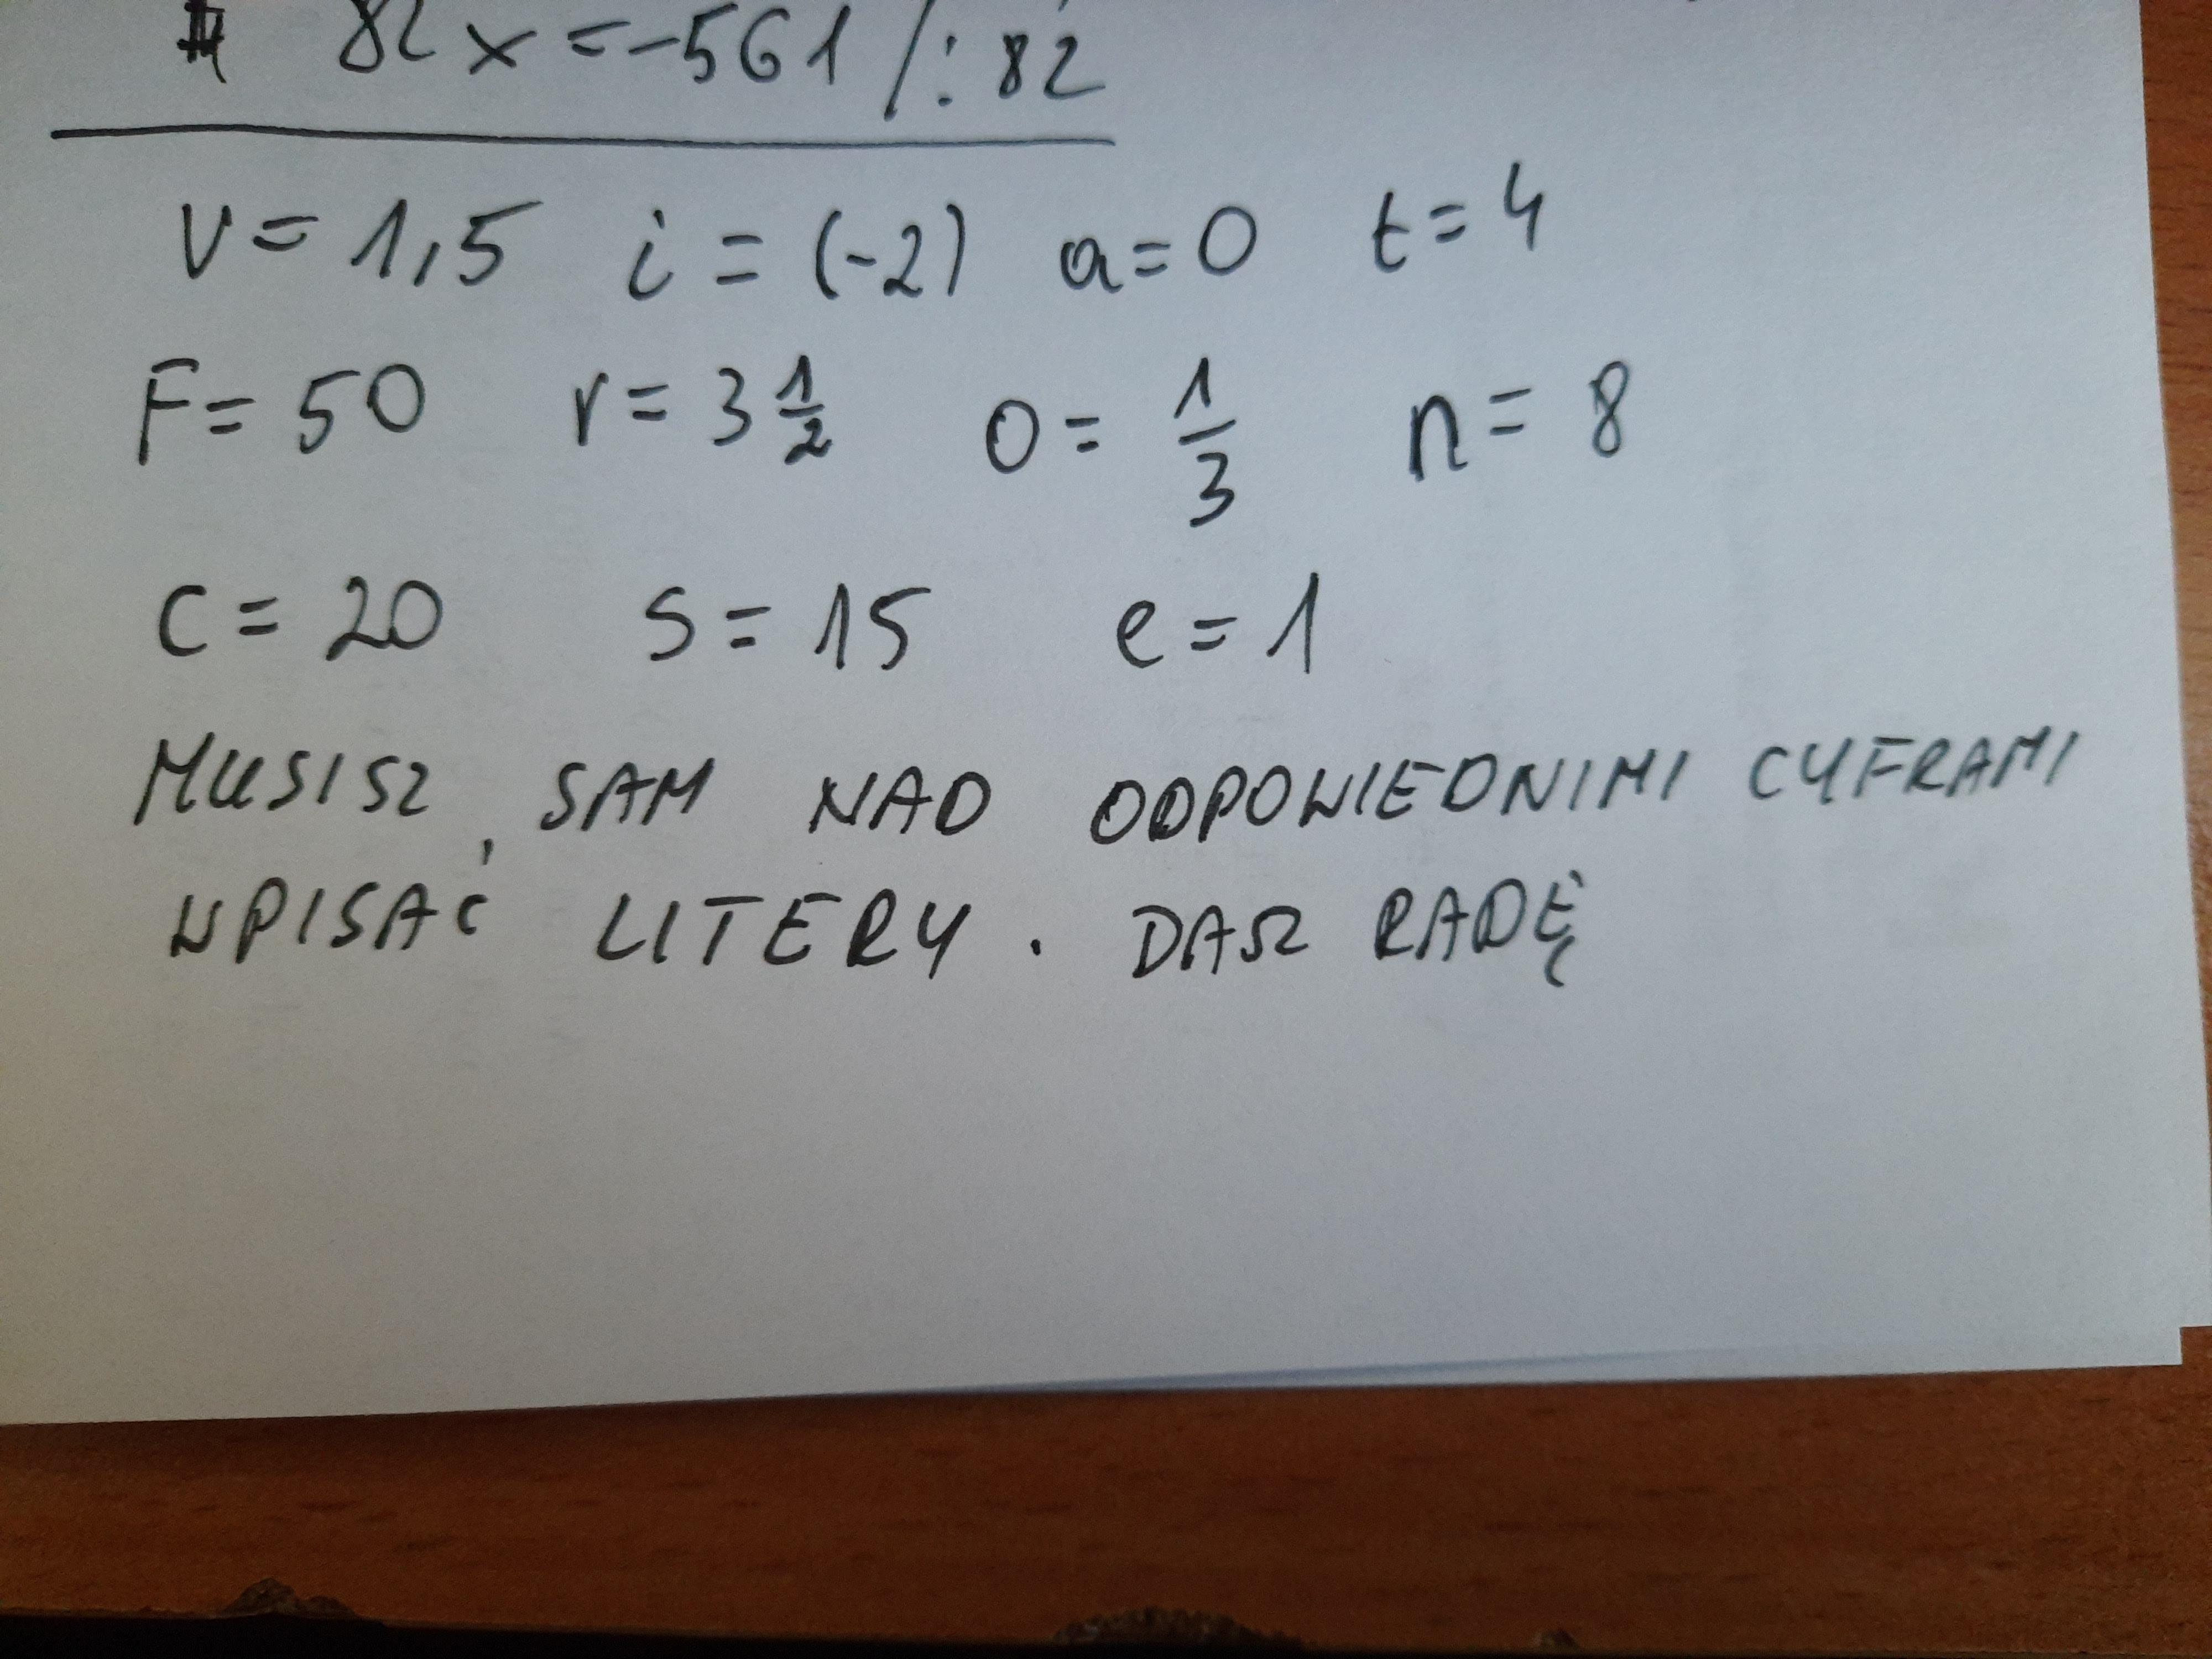 82x=-561 /:82
V= 1,5 i = (-2) a=0 t=4
F= 50 r= 3 1/2 o= 1/3 n= 8
C= 20 s= 15 e=1
MUSISZ SAM NAD ODPOWIEDNIMI CYFRAMI
WPISAĆ LITERY. DASZ RADĘ